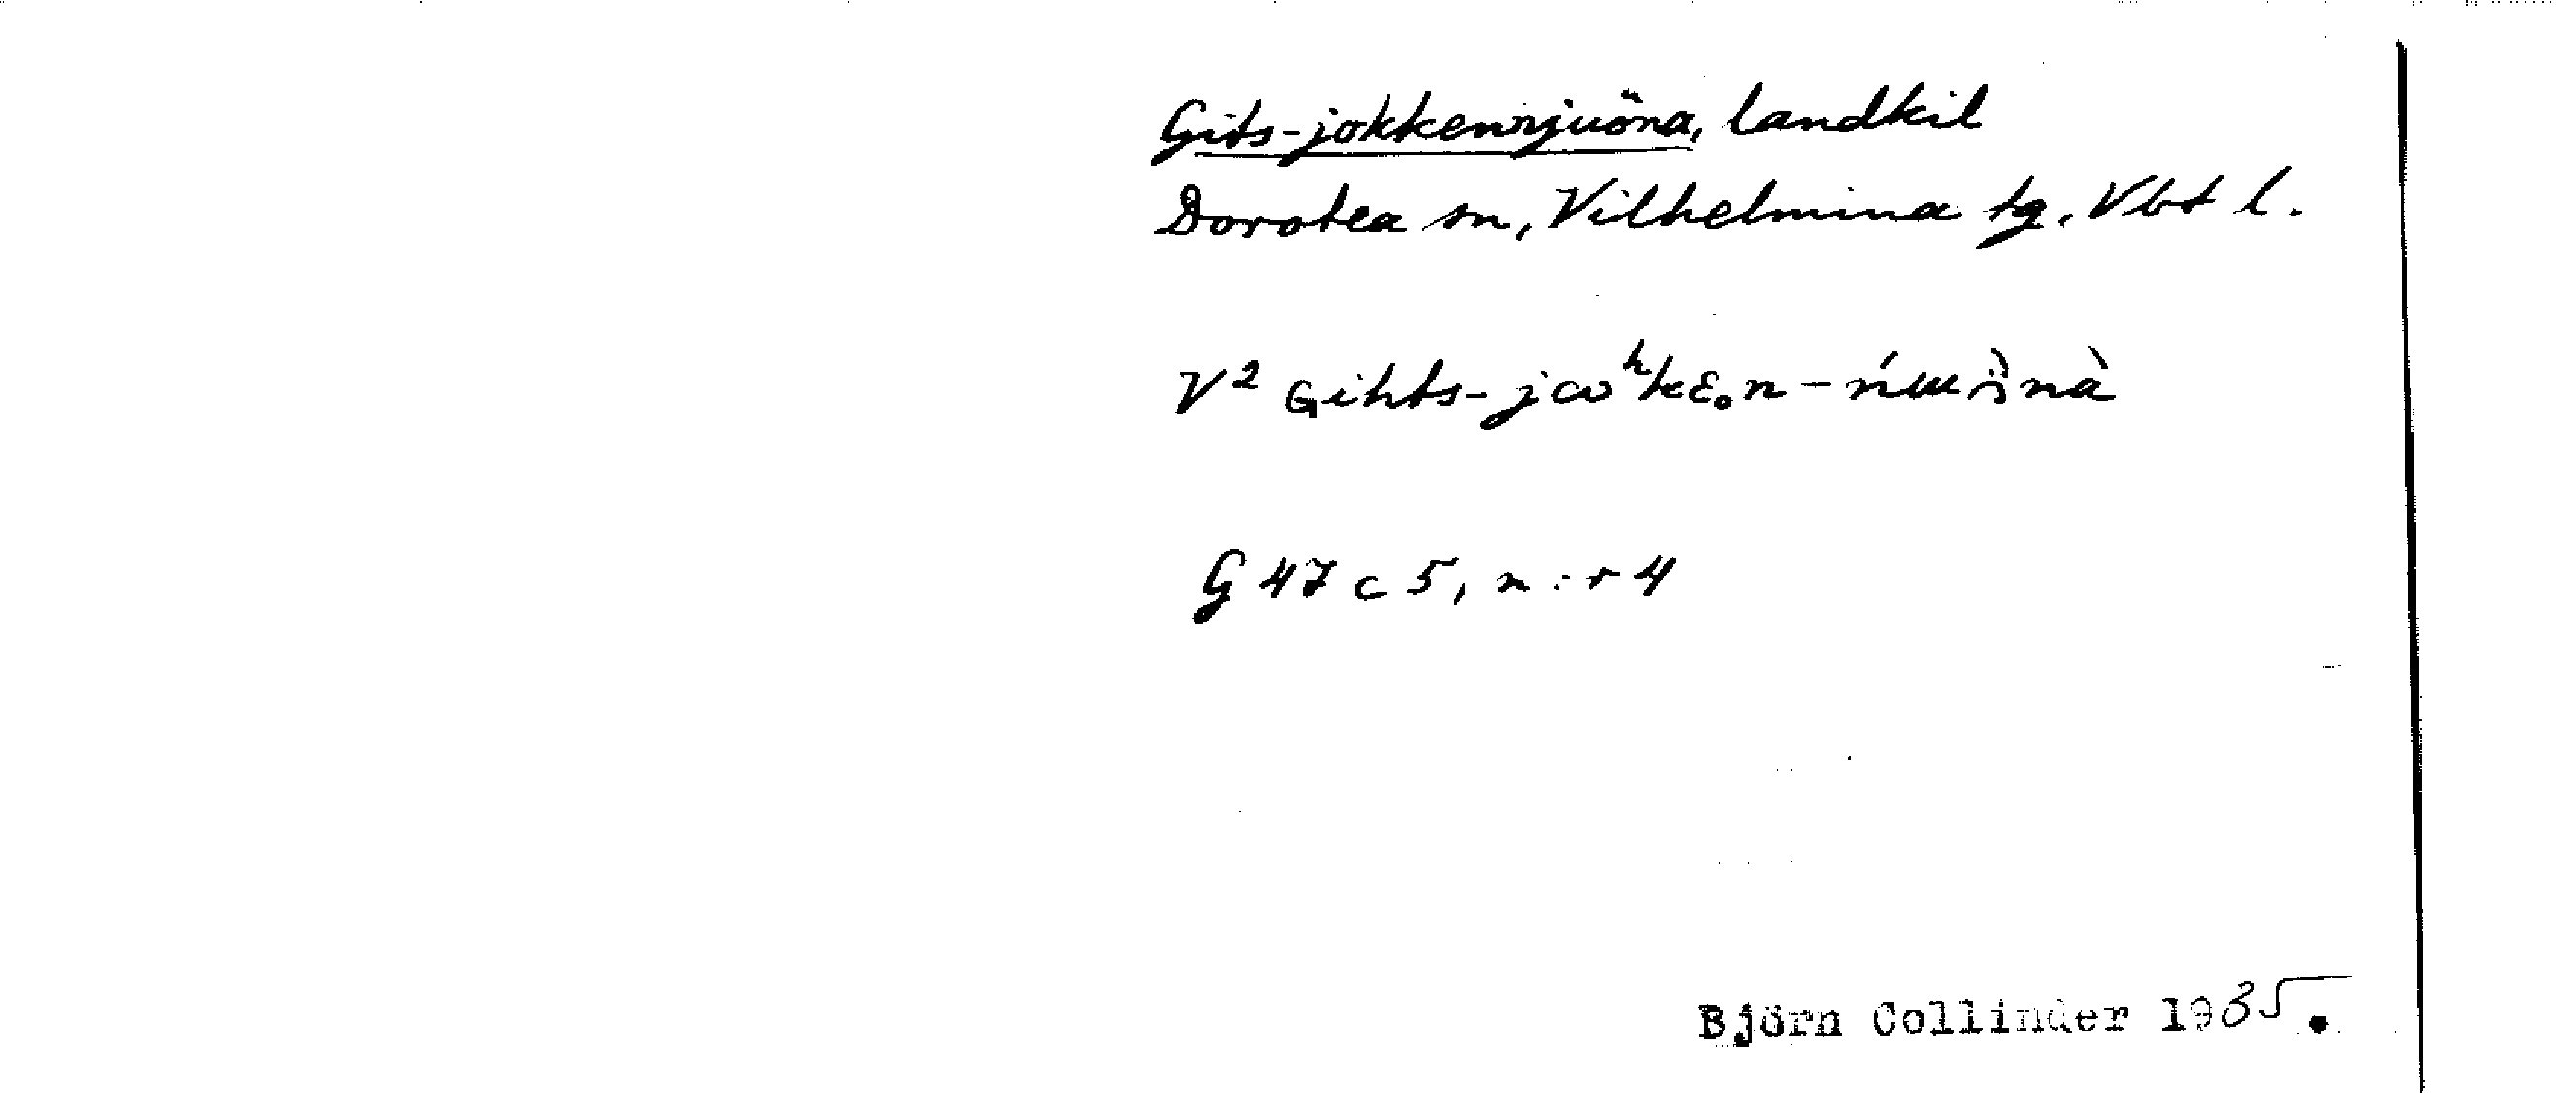 Gits-jokkenvjuöna, landkil
Dorotea sn, Vilhelmina tg. Vbt l.
V²
G 47 c 5, n:r 4
Björn Collinder 1935.